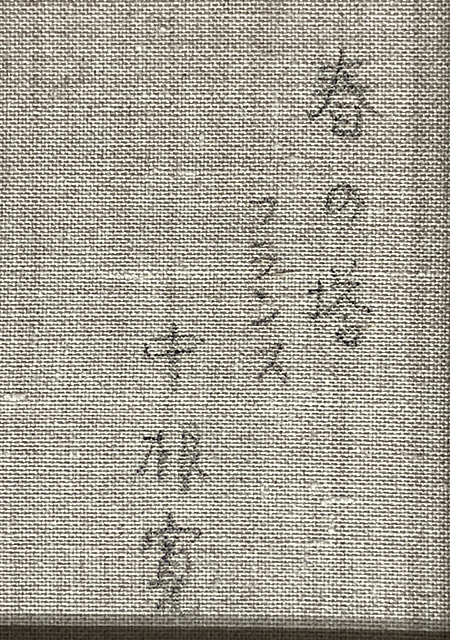 春の塔
フランス
中根寛